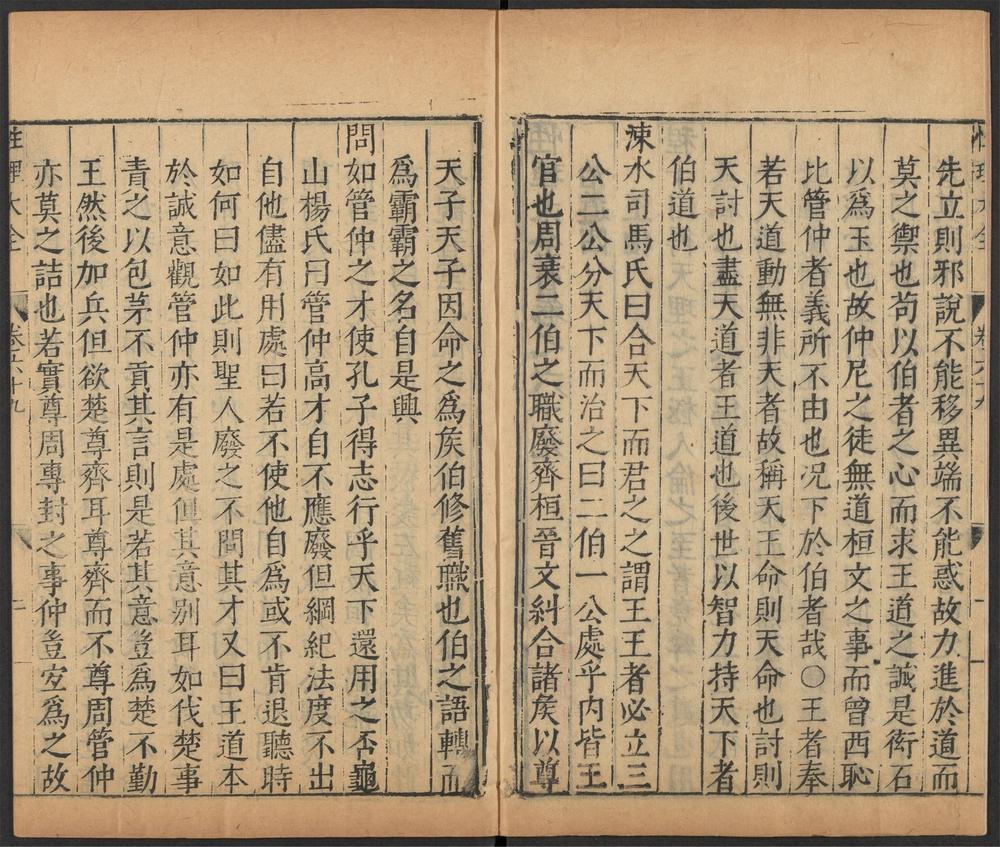 性理大全 卷六十九
先立則邪說不能移異端不能惑故力進於道而
莫之禦也苟以伯者之心而求王道之誠是衒石
以爲玉也故仲尼之徒無道桓文之事而曾西恥
比管仲者義所不由也况下於伯者哉○王者奉
若天道動無非天者故稱天王命則天命也討則
天討也盡天道者王道也後世以智力持天下者
伯道也
涑水司馬氏曰合天下而君之之謂王王者必立三
公二公分天下而治之曰二伯一公處乎内皆王
官也周衰二伯之職廢齊桓晉文糾合諸矦以尊
天子天子因命之爲矦伯修舊職也伯之語轉而
爲霸霸之名自是興
問如管仲之才使孔子得志行乎天下還用之否龜
山楊氏曰管仲高才自不應廢但綱紀法度不出
自他儘有用處曰若不使他自爲或不肯退聽時
如何曰如此則聖人廢之不問其才又曰王道本
於誠意觀管仲亦有是處但其意别耳如伐楚事
責之以包茅不貢其言則是若其意豈爲楚不勤
王然後加兵但欲楚尊齊耳尊齊而不尊周管仲
亦莫之詰也若實尊周專封之事仲豈宜爲之故
性理大全 卷六十九 二